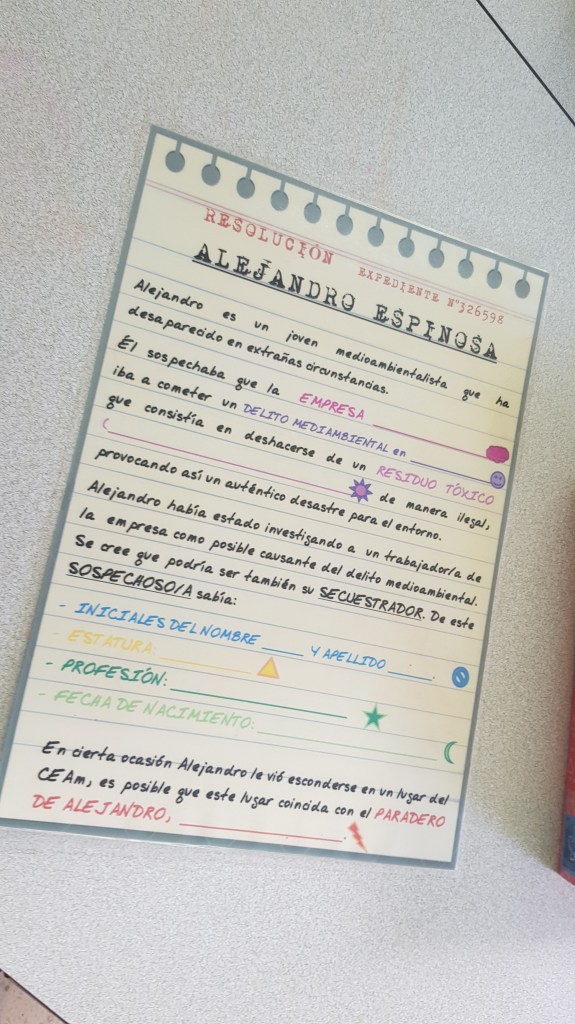 RESOLUCIÓN EXPEDIENTE Nº326598
ALEJANDRO ESPINOSA
Alejandro es un joven medioambientalista que ha
desaparecido en extrañas circunstancias.
Él sospechaba que la EMPRESA ____________
iba a cometer un DELITO MEDIAMBIENTAL en ____________
que consistía en deshacerse de un RESIDUO TÓXICO
(____________ de manera ilegal,
provocando así un auténtico desastre para el entorno.
Alejandro había estado investigando a un trabajador/a de
la empresa como posible causante del delito medioambiental.
Se cree que podría ser también su SECUESTRADOR. De este
SOSPECHOSO/A sabía:
- INICIALES DEL NOMBRE _____ Y APELLIDO _____.
- ESTATURA: ____________
- PROFESIÓN: ____________
- FECHA DE NACIMIENTO: ____________
En cierta ocasión Alejandro le vió esconderse en un lugar del
CEAm, es posible que este lugar coincida con el PARADERO
DE ALEJANDRO, ____________.